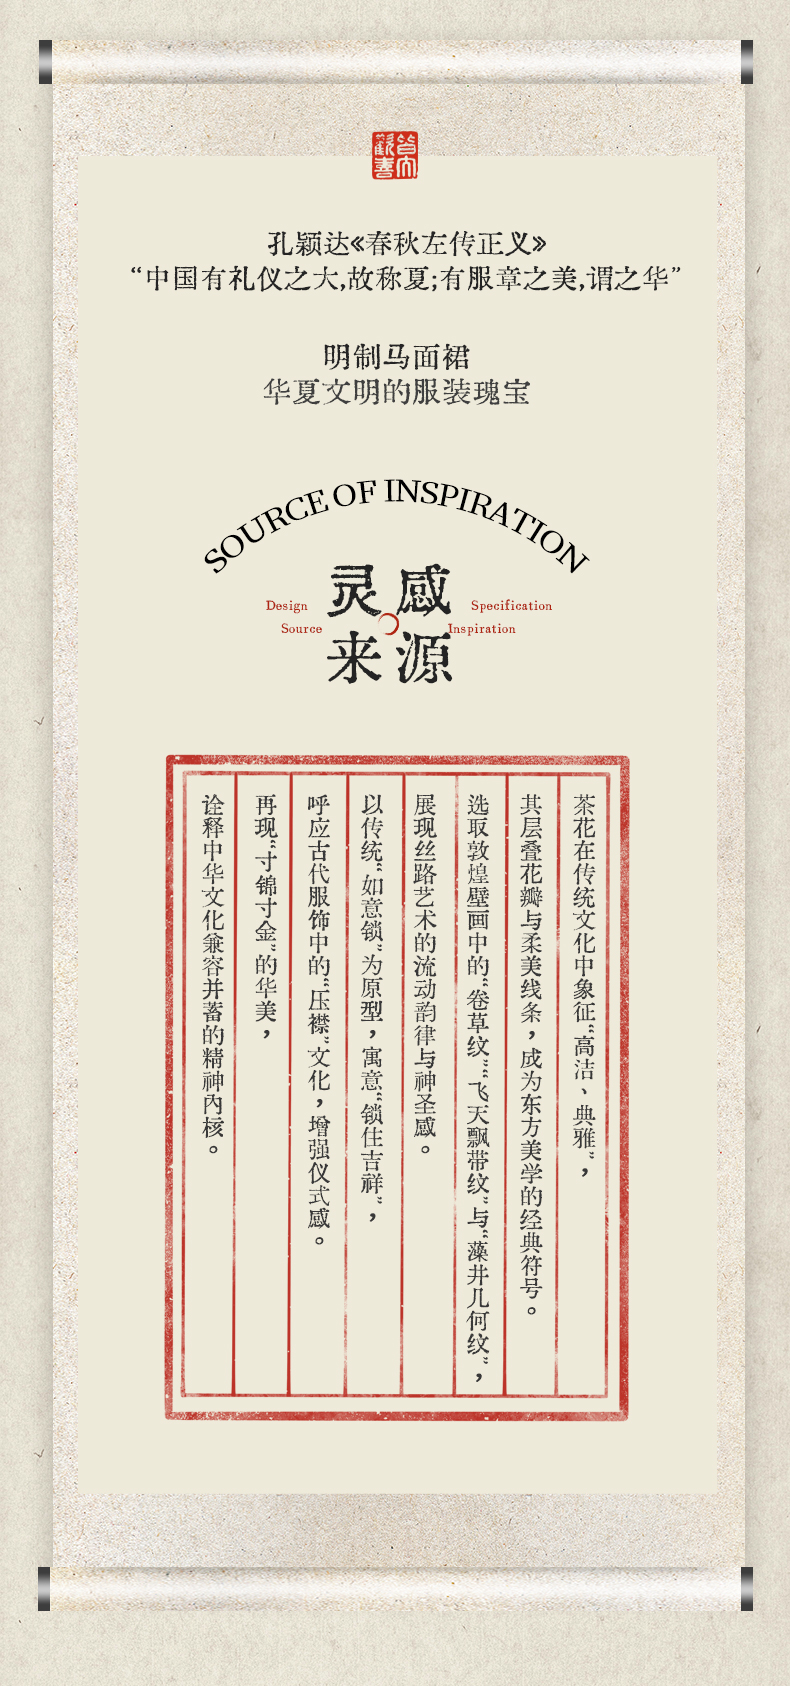 孔颖达《春秋左传正义》
“中国有礼仪之大,故称夏;有服章之美,谓之华”
明制马面裙
华夏文明的服装瑰宝
SOURCE OF INSPIRATION
感源
灵来
Design
Source
Specification
Inspiration
茶花在传统文化中象征“高洁、典雅”，
其层叠花瓣与柔美线条，成为东方美学的经典符号。
选取敦煌壁画中的“卷草纹”“飞天飘带纹”与“藻井几何纹”，
展现丝路艺术的流动韵律与神圣感。
以传统“如意锁”为原型，寓意“锁住吉祥”，
呼应古代服饰中的“压襟”文化，增强仪式感。
再现“寸锦寸金”的华美，
诠释中华文化兼容并蓄的精神内核。